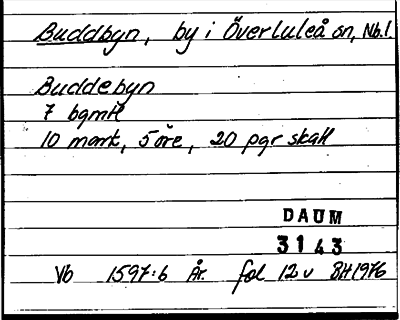 Buddbyn, by i Överluleå sn, Nb.l.
Buddebyn
7 bgmtl
10 mark, 5 öre, 20 pgr skatt
DAUM
3143
Vb 1597:6 År. fol 12v BH 1976